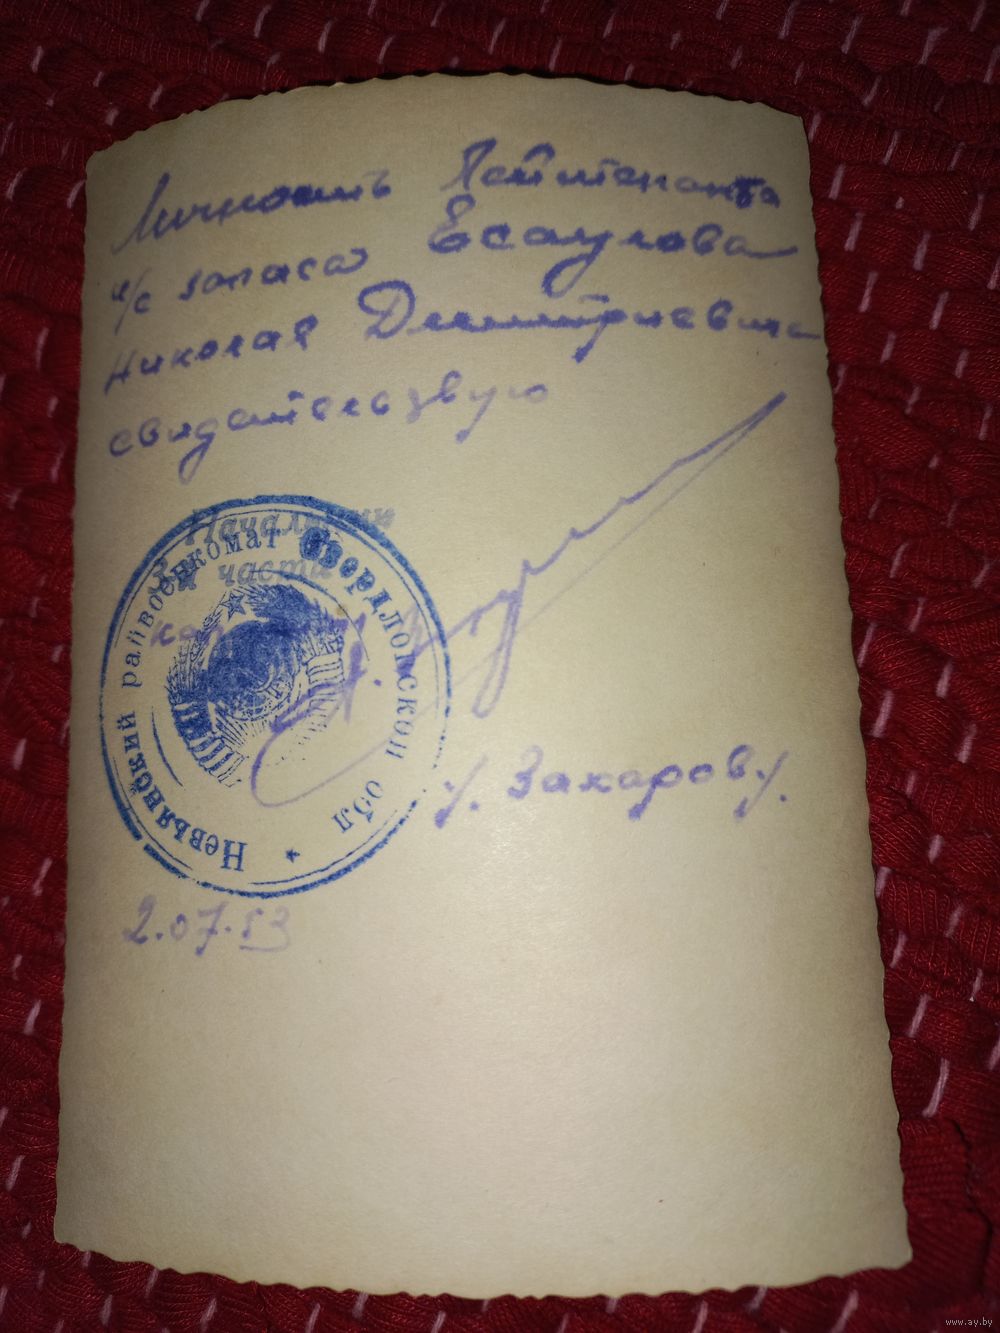 Личность Лейтенанта
и/с запаса Есаулова
Николая Дмитриевича
свидетельствую
Начальник
3й части
капитан
/. Захаров./.
Невьянский райвоенкомат Свердловской обл
2.07.53
www.ay.by